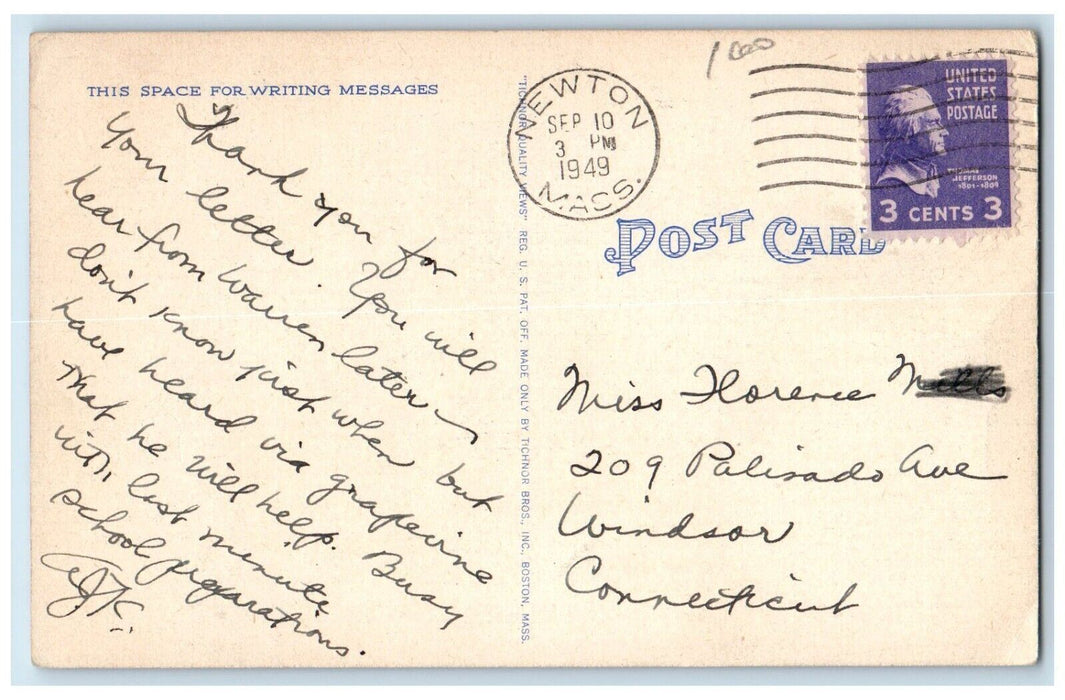 THIS SPACE FOR WRITING MESSAGES
Thank you for
your letter. You will
hear from Warren later –
don't know just when but
have heard via grapevine
that he will help. Busy
with last minute
school preparations.
"TICHNOR QUALITY VIEWS" REG. U. S. PAT. OFF. MADE ONLY BY TICHNOR BROS., INC., BOSTON, MASS.
NEWTON
SEP 10
3 PM
1949
MASS.
UNITED
STATES
POSTAGE
THOMAS
JEFFERSON
1801-1809
3 CENTS 3
POST CARD
Miss Florence
209 Palisado Ave
Windsor
Connecticut